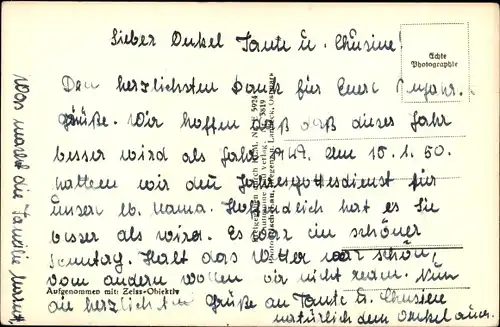 Lieber Onkel Tante u. Chusine!
Echte
Photographie
Den herzlichsten Dank für Euere Neujahr.
grüße. Wir hoffen daß daß dieses Jahr
besser wird als Jahr Am 15.1.50.
hatten wir den Jahresgottesdienst für
unsere lb. Mama. Hoffendlich hat es Sie
besser als wird. Es war ein schöner
Sonntag. Halt das Wetter war schön,
vom andern wollen wir nicht reden. Nun
die herzlichsten Grüße an Tante u. Chusine
natürlich dem Onkel auch.
Aufgenommen mit: Zeiss-Objektiv
Was macht die Familie